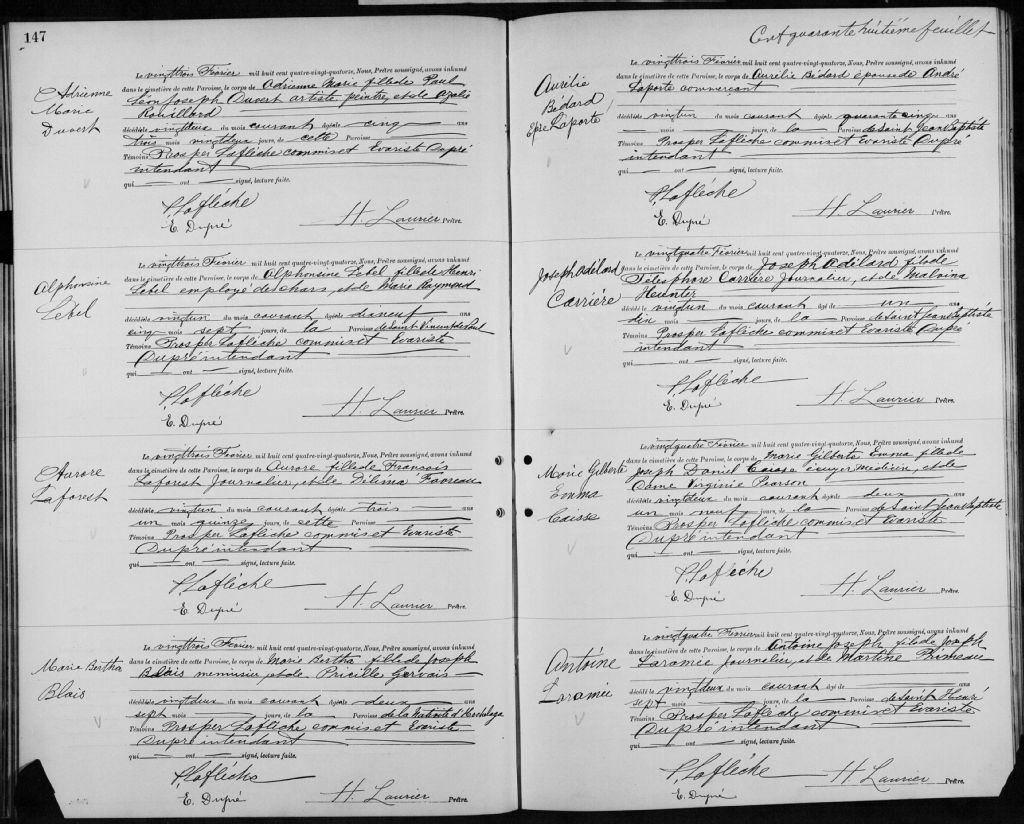 147
Adrienne
Marie
Duvert
Le vingttrois Février mil huit cent quatre-vingt-quatorze, Nous, Prêtre soussigné, avons inhumé
dans le cimetière de cette Paroisse, le corps de Adrienne Marie fille de Paul
Léon Joseph Duvert artiste peintre, et de Azalie
Rouillard
décédée le vingtdeux du mois courant âgée de cinq ans
trois mois vingtdeux jours, de cette Paroisse
Témoins Prosper Laflèche commis et Evariste Dupré
intendant
qui — ont — signé, lecture faite.
P. Laflèche
E. Dupré
H. Laurier Prêtre.
Alphonsine
Lebel
Le vingttrois Février mil huit cent quatre-vingt-quatorze, Nous, Prêtre soussigné, avons inhumé
dans le cimetière de cette Paroisse, le corps de Alphonsine Lebel fille de Henri
Lebel employé des chars, et de Marie Raymond
décédée le vingtun du mois courant âgée de dixneuf ans
cinq mois sept jours, de la Paroisse de Saint Vincent de Paul
Témoins Prosper Laflèche commis et Evariste
Dupré intendant
qui — ont — signé, lecture faite.
P. Laflèche
E. Dupré
H. Laurier Prêtre.
Aurore
Laforest
Le vingttrois Février mil huit cent quatre-vingt-quatorze, Nous, Prêtre soussigné, avons inhumé
dans le cimetière de cette Paroisse, le corps de Aurore fille de Fransois
Laforest Journalier, et de Délima Favreau
décédée le vingtun du mois courant âgée de trois ans
un mois quinze jours, de cette Paroisse
Témoins Prosper Laflèche commis et Evariste
Dupré intendant
qui — ont — signé, lecture faite.
P. Laflèche
E. Dupré
H. Laurier Prêtre.
Marie Bertha
Blais
Le vingttrois Février mil huit cent quatre-vingt-quatorze, Nous, Prêtre soussigné, avons inhumé
dans le cimetière de cette Paroisse, le corps de Marie Bertha fille de Joseph
Blais menuisier, et de Pricille Gervais
décédée le vingtdeux du mois courant âgée de deux ans
sept mois — jours, de la Paroisse de la Nativité d'Hochelaga
Témoins Prosper Laflèche commis et Evariste
Dupré intendant
qui — ont — signé, lecture faite.
P. Laflèche
E. Dupré
H. Laurier Prêtre.
Cent quarante huitième feuillet
Aurélie
Bédard
Epse Laporte
Le vingttrois Février mil huit cent quatre-vingt-quatorze, Nous, Prêtre soussigné, avons inhumé
dans le cimetière de cette Paroisse, le corps de Aurélie Bédard épouse de André
Laporte commerçant
décédée le vingtun du mois courant âgée de quarante cinq ans
— mois — jours, de la Paroisse de Saint Jean Baptiste
Témoins Prosper Laflèche commis et Evariste Dupré
intendant
qui — ont — signé, lecture faite.
P. Laflèche
E. Dupré
H. Laurier Prêtre.
Joseph Adélard
Carrière
Le vingtquatre Février mil huit cent quatre-vingt-quatorze, Nous, Prêtre soussigné, avons inhumé
dans le cimetière de cette Paroisse, le corps de Joseph Adélard fils de
Télesphore Carrière Journalier, et de Malvina
Heunter
décédé le vingtun du mois courant âgé de un an
dix mois — jours, de la Paroisse de Saint Jean Baptiste
Témoins Prosper Laflèche commis et Evariste Dupré
intendant
qui — ont — signé, lecture faite.
P. Laflèche
E. Dupré
H. Laurier Prêtre.
Marie Gilberte
Emma
Caisse
Le vingtquatre Février mil huit cent quatre-vingt-quatorze, Nous, Prêtre soussigné, avons inhumé
dans le cimetière de cette Paroisse, le corps de Marie Gilberte Emma fille de
Joseph Daniel Caisse écuyer Médicin, et de
Dame Virginie Pearson
décédée le vingtdeux du mois courant âgée de deux ans
un mois neuf jours, de la Paroisse de Saint Jean Baptiste
Témoins Prosper Laflèche commis et Evariste
Dupré intendant
qui — ont — signé, lecture faite.
P. Laflèche
E. Dupré
H. Laurier Prêtre.
Antoine
Laramée
Le vingtquatre Février mil huit cent quatre-vingt-quatorze, Nous, Prêtre soussigné, avons inhumé
dans le cimetière de cette Paroisse, le corps de Antoine Joseph fils de Joseph
Laramée Journalier, et de Martine Primeau
décédé le vingtdeux du mois courant âgé de — ans
sept mois — jours, de la Paroisse de Saint Henri
Témoins Prosper Laflèche commis et Evariste
Dupré intendant
qui — ont — signé, lecture faite.
P. Laflèche
E. Dupré
H. Laurier Prêtre.